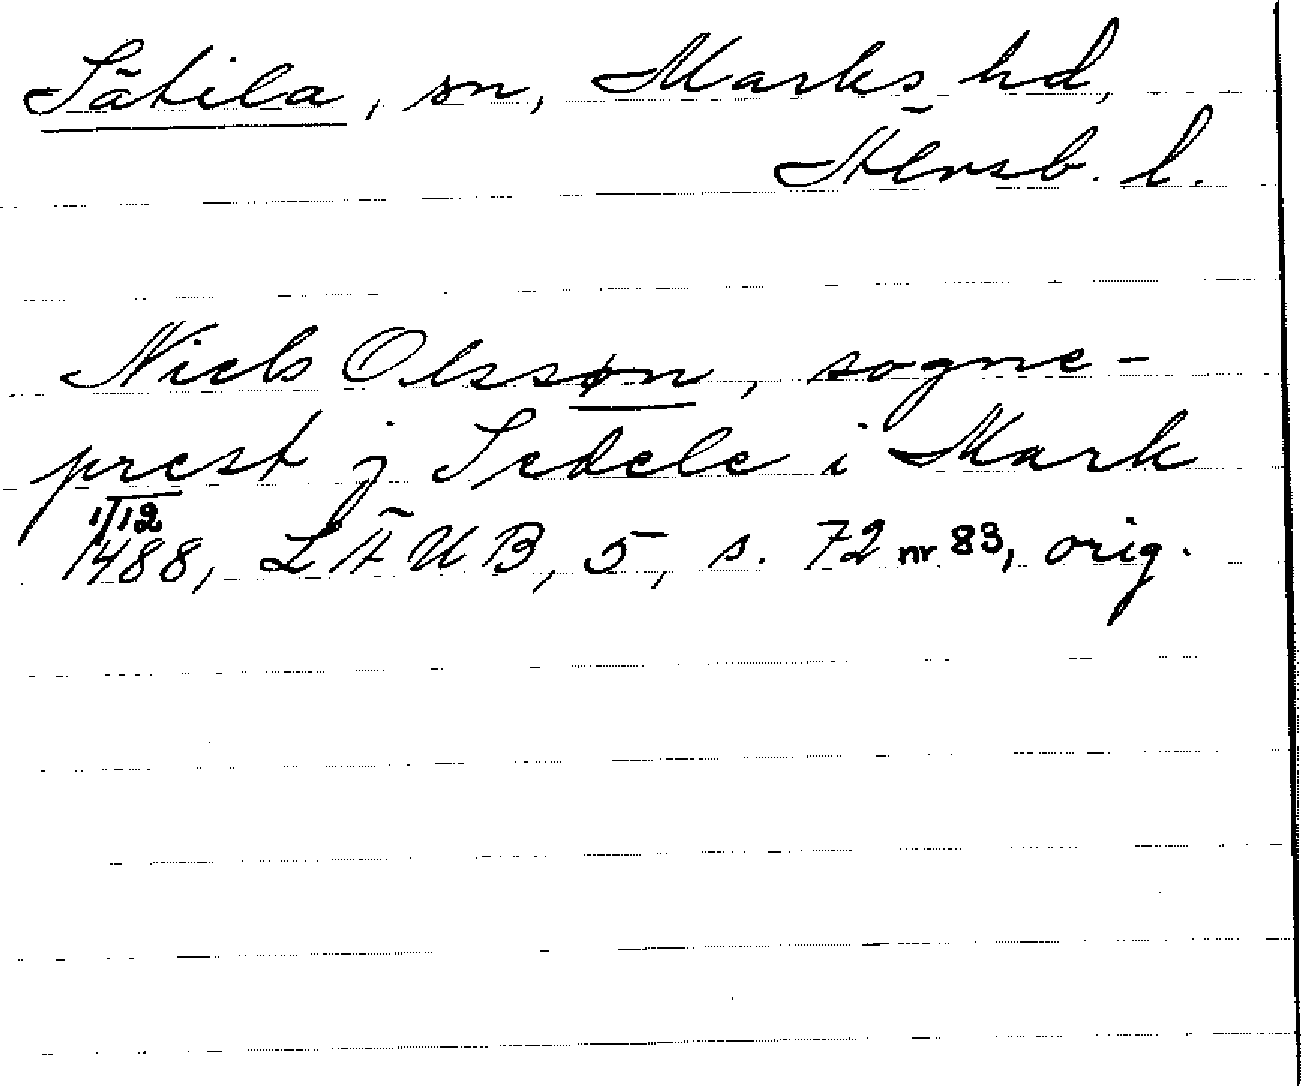 Sätila, sn, Marks hd,
Älvsb. l.
Niels Olssøn, sogne-
prest j Sedele i Mark
1/12
1488, LÄUB, 5, s. 72 nr 83, orig.